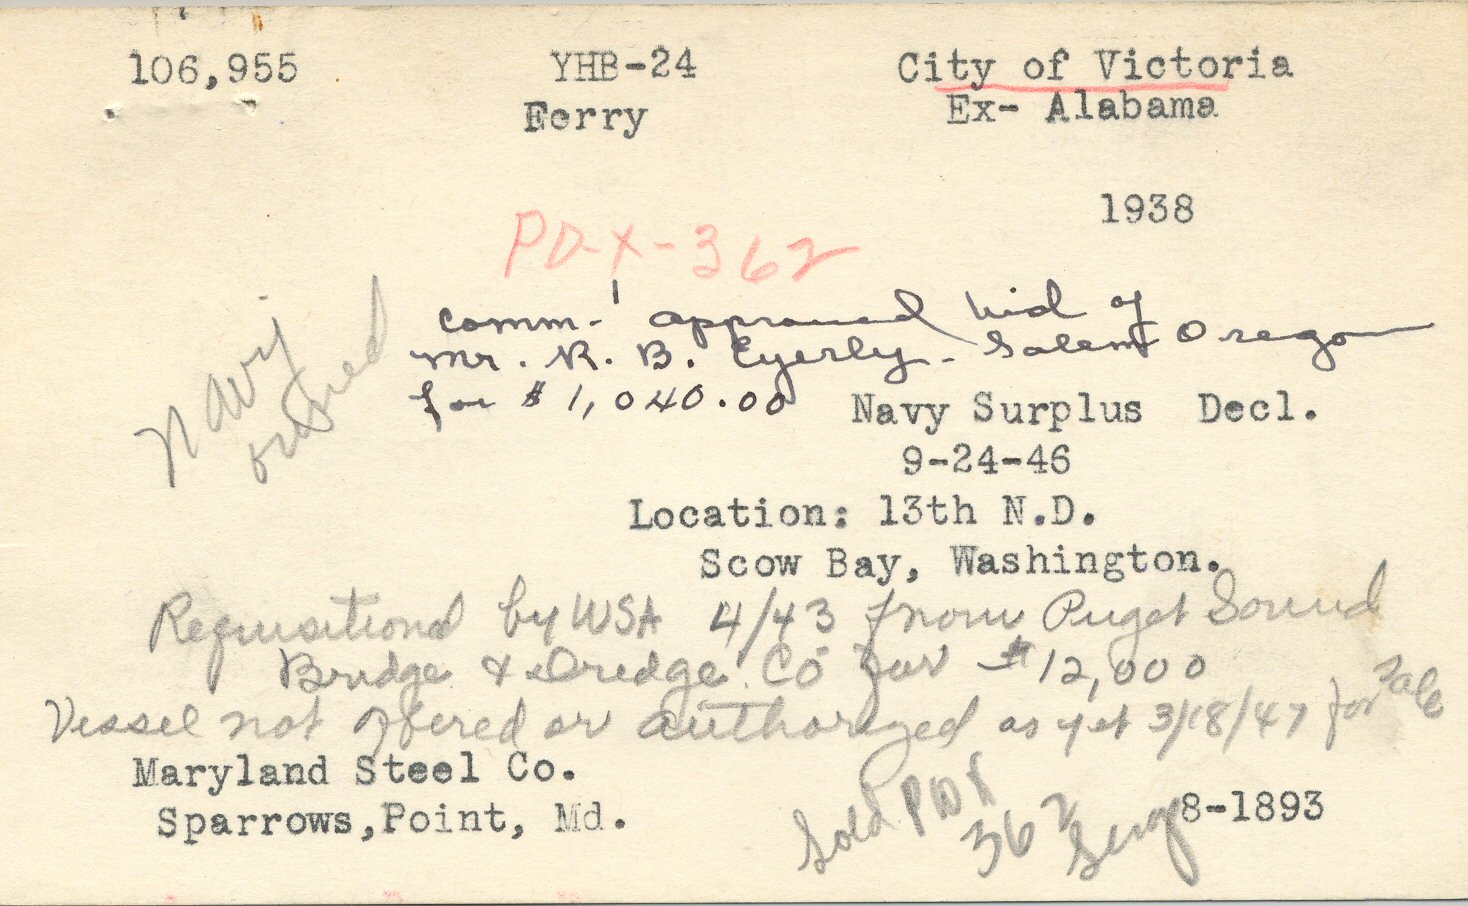 106,955 YHB-24 City of Victoria
Ferry Ex- Alabama
1938
PD-X-362
Comm-' approved bid of
Mr. R. B. Eyerly - Salem Oregon
for $1,040.00
Navy
owned
Navy Surplus Decl.
9-24-46
Location: 13th N.D.
Scow Bay, Washington.
Requisitioned by WSA 4/43 from Puget Sound
Bridge & Dredge Co for $12,000
Vessel not offered or authorized as yet 3/18/47 for sale
Maryland Steel Co.
Sparrows,Point, Md. 8-1893
Sold PDX
362